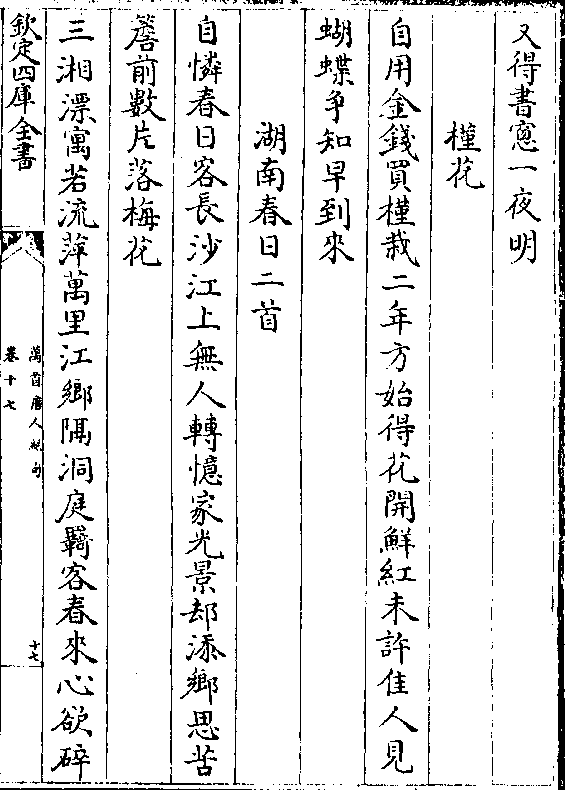 又得書窓一夜明
槿花
自用金錢買槿栽二年方始得花開鮮紅未許佳人見
蝴蝶争知早到來
湖南春日二首
自憐春日客長沙江上無人轉憶家光景却添鄉思苦
簷前數片落梅花
三湘漂寓若流萍萬里江鄉隅洞庭羇客春來心欲碎
欽定四庫全書
萬首唐人絶句
卷十七
十七